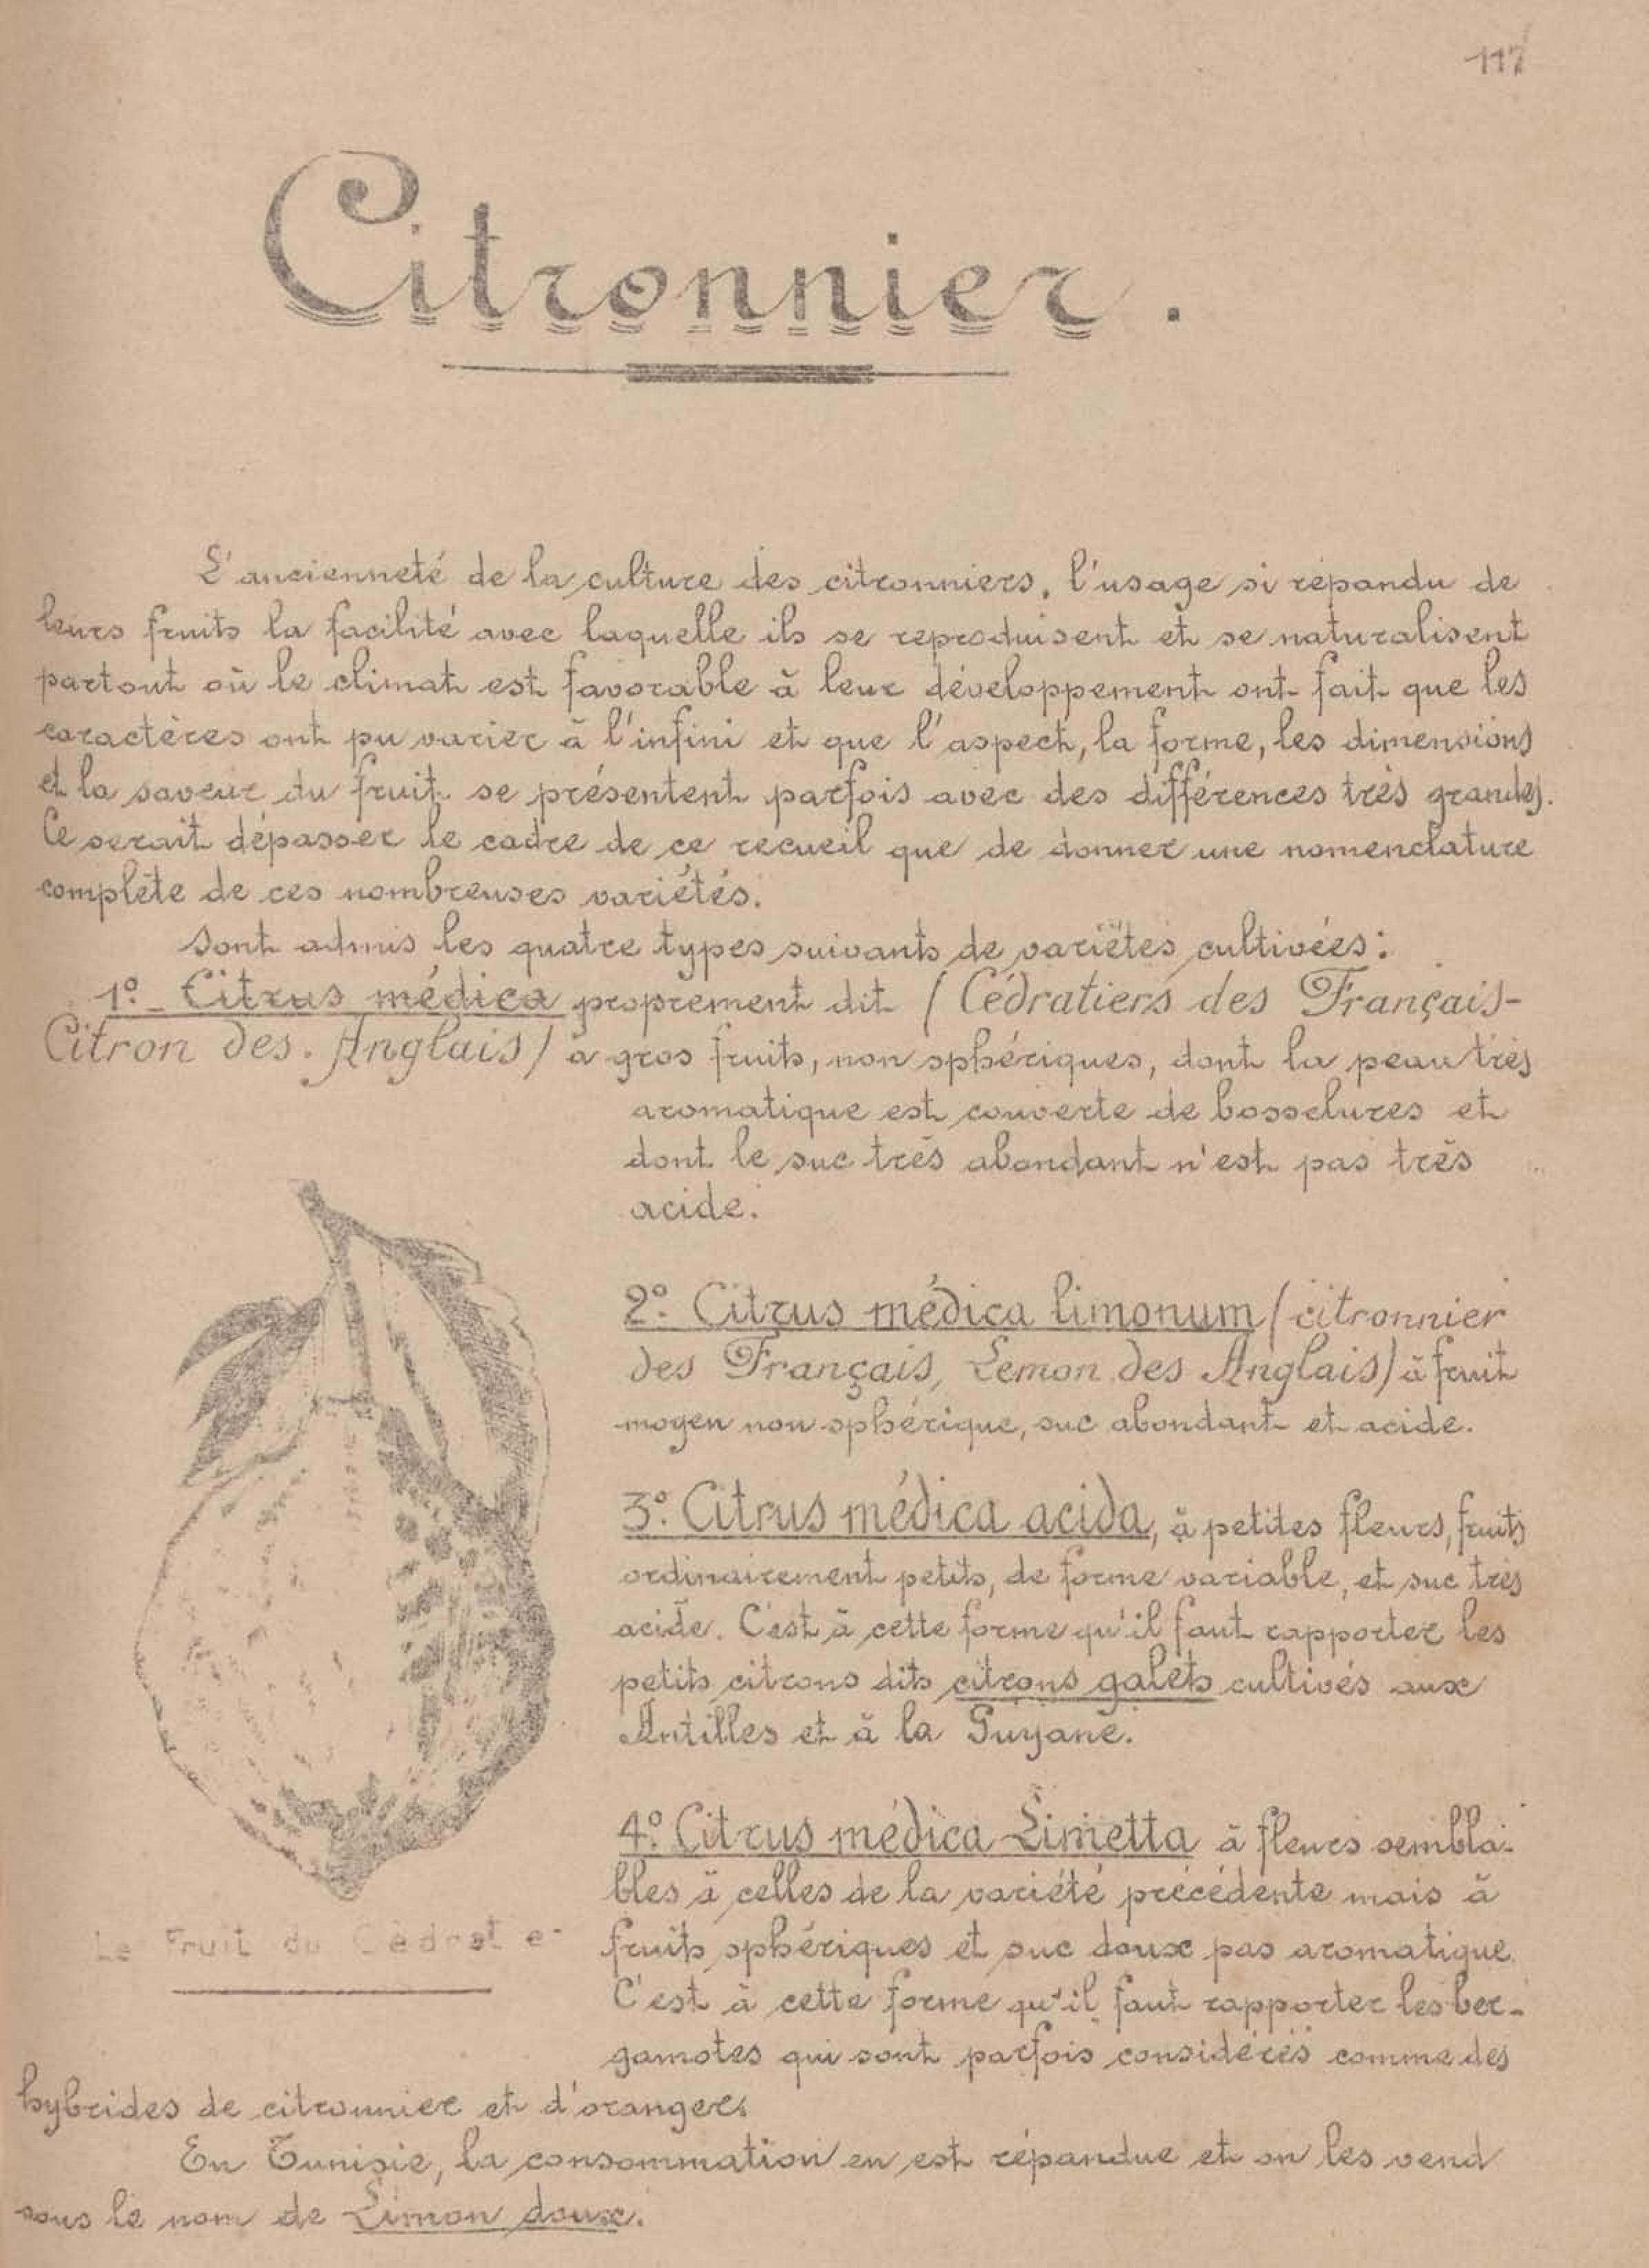 117
Citronnier.
L'ancienneté de la culture des citronniers, l'usage si répandu de
leurs fruits la facilité avec laquelle ils se reproduisent et se naturalisent
partout où le climat est favorable à leur développement ont fait que les
caractères ont pu varier à l'infini et que l'aspect, la forme, les dimensions
et la saveur du fruit se présentent parfois avec des différences très grandes.
Ce serait dépasser le cadre de ce recueil que de donner une nomenclature
complète de ces nombreuses variétés.
Sont admis les quatre types suivants de variétés cultivées:
1°- Citrus médica proprement dit (Cédratiers des Français-
Citron des Anglais) à gros fruits, non sphériques, dont la peau très
aromatique est couverte de bosselures et
dont le suc très abondant n'est pas très
acide.
2°. Citrus médica limonum (citronnier
des Français, Lemon des Anglais) à fruit
moyen non sphérique, suc abondant et acide.
3°. Citrus médica acida, à petites fleurs, fruits
ordinairement petits, de forme variable, et suc très
acide. C'est à cette forme qu'il faut rapporter les
petits citrons dits citrons galets cultivés aux
Antilles et à la Guyane.
4°. Citrus médica Limetta à fleurs sembla-
bles à celles de la variété précédente mais à
fruits sphériques et suc doux pas aromatique.
C'est à cette forme qu'il faut rapporter les ber-
gamotes qui sont parfois considérés comme des
Le Fruit du Cédratier
hybrides de citronnier et d'oranger.
En Tunisie, la consommation en est répandue et on les vend
sous le nom de Limon doux.